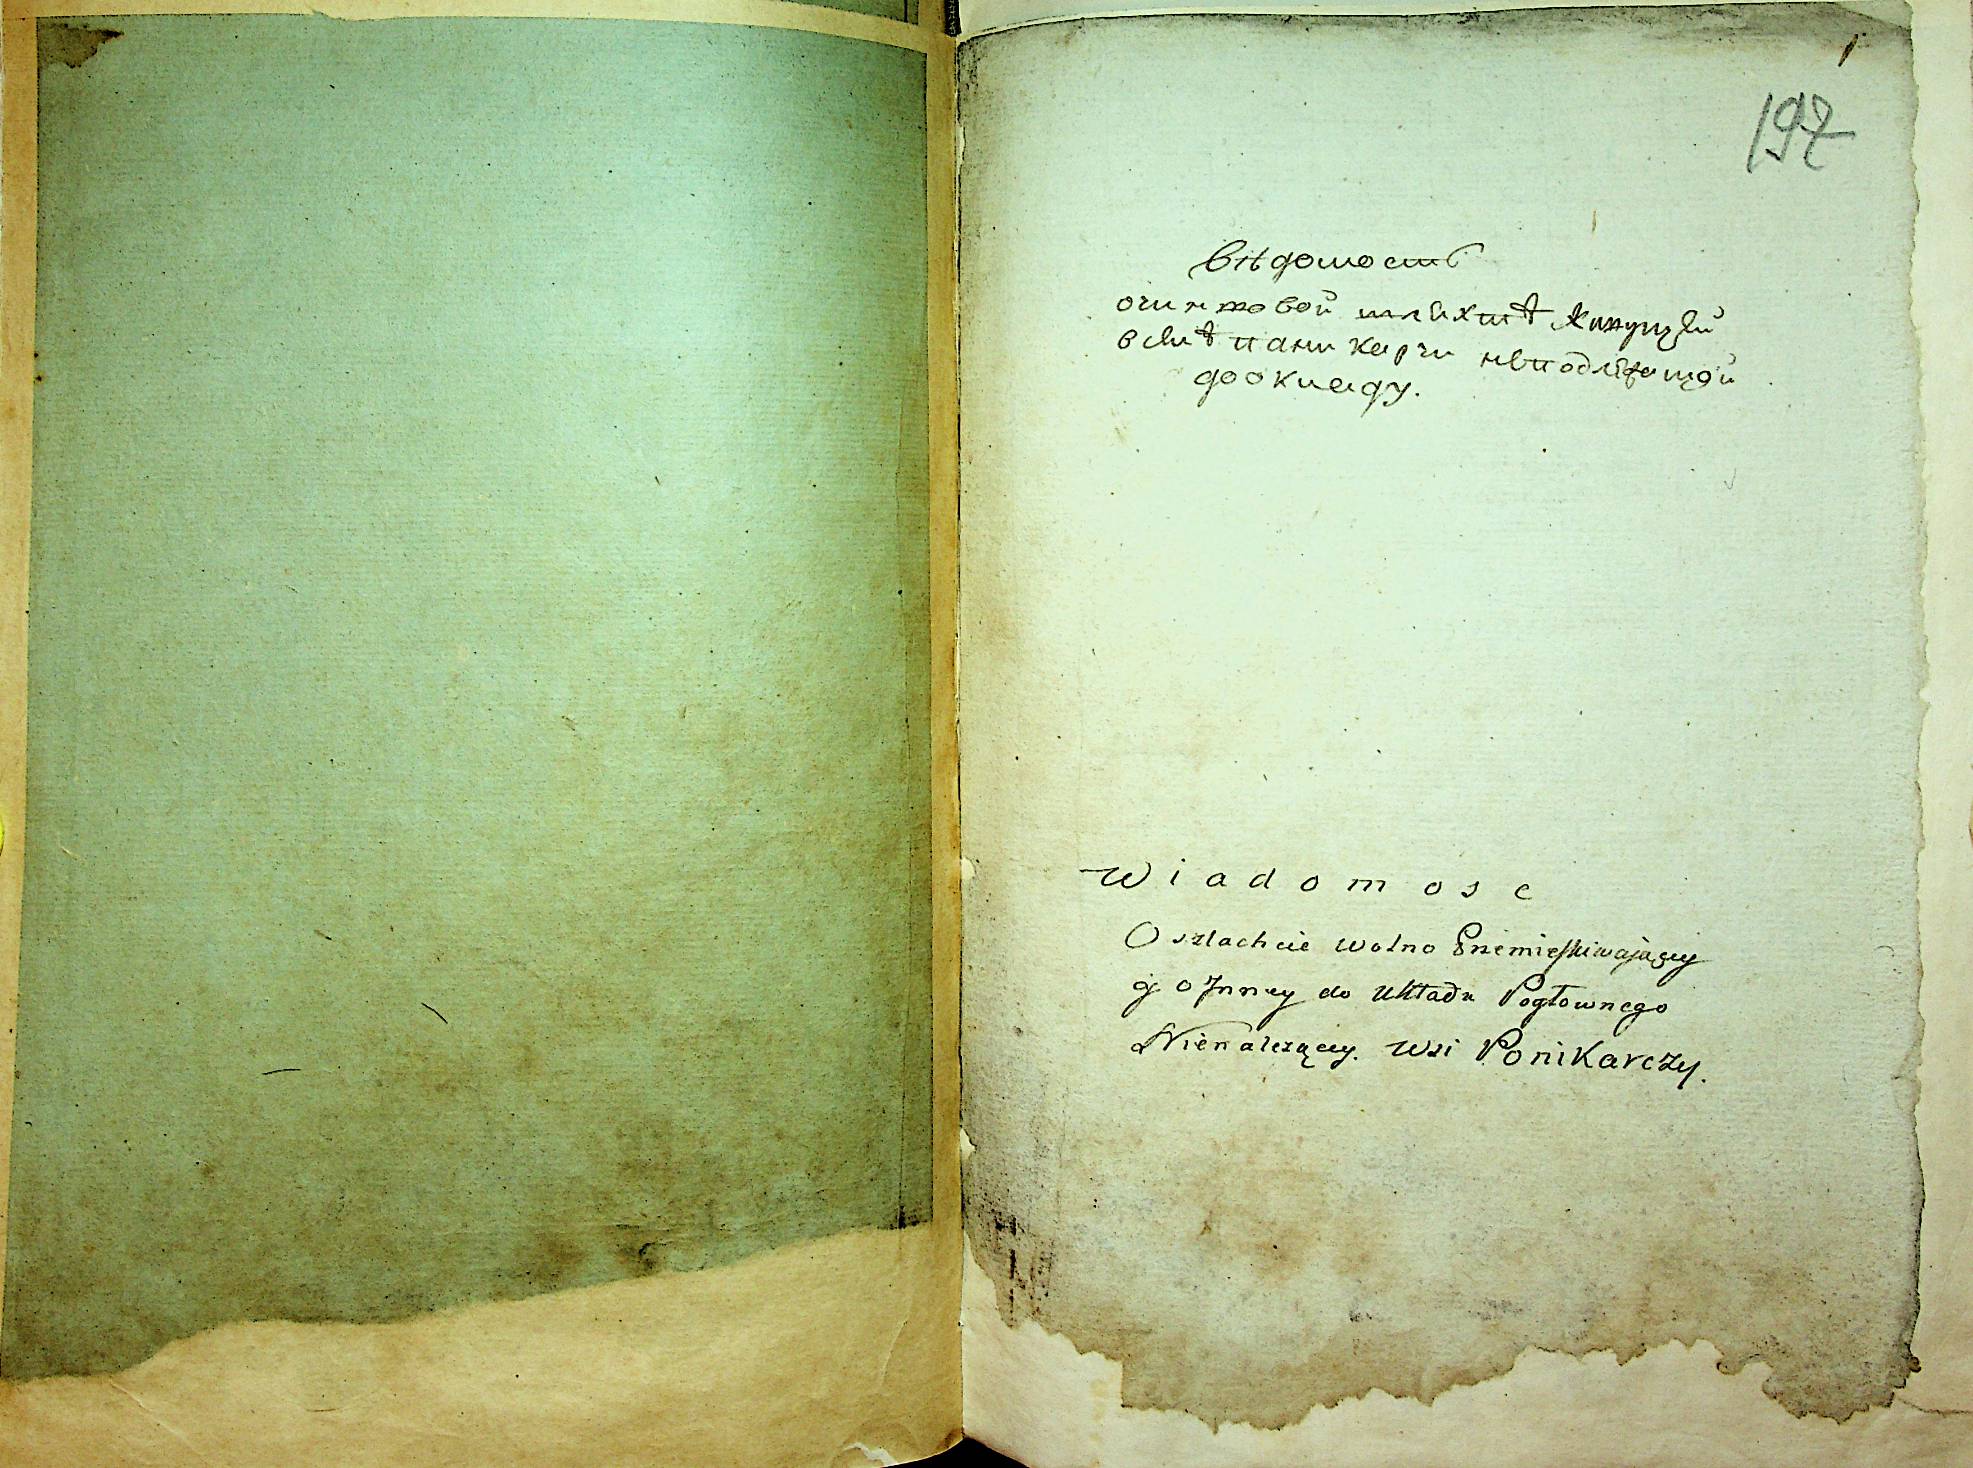 197
Вѣдомость
очинжовой шляхтѣ живущей
в селѣ паникарчи неподлежащой
доокладу.
Wiadomosc
O szlachcie wolno Pzemieszkiwającey
y o Jnney do Układu Pogłownego
Nienalezącey. Wsi Ponikarczy.